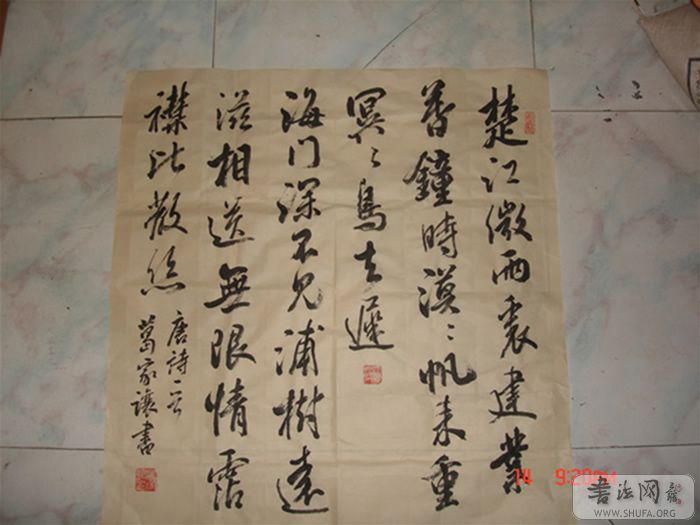 楚江微雨裏建業
暮鐘時漠〻帆来重
冥〻鳥去遲
海门深不見浦樹遠
滋相送無限情霑
襟比散絲
唐詩一首
葛家讓書
14 9:20
書法网
WWW.SHUFA.ORG